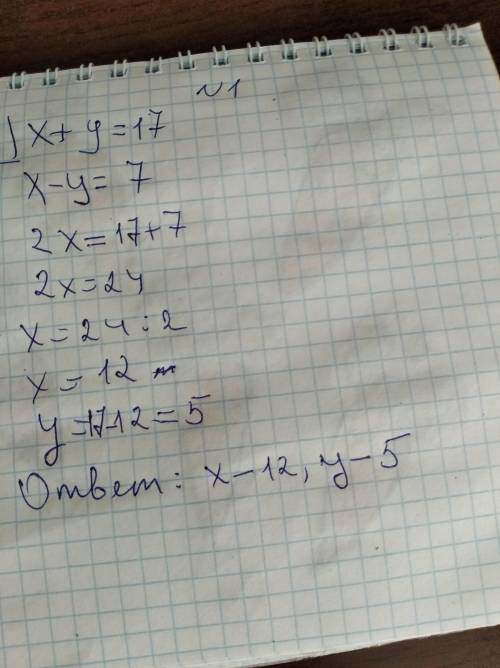 №1
x+y=17
x-y=7
2x=17+7
2x=24
x=24:2
x=12
y=17-12=5
Ответ: x-12, y-5